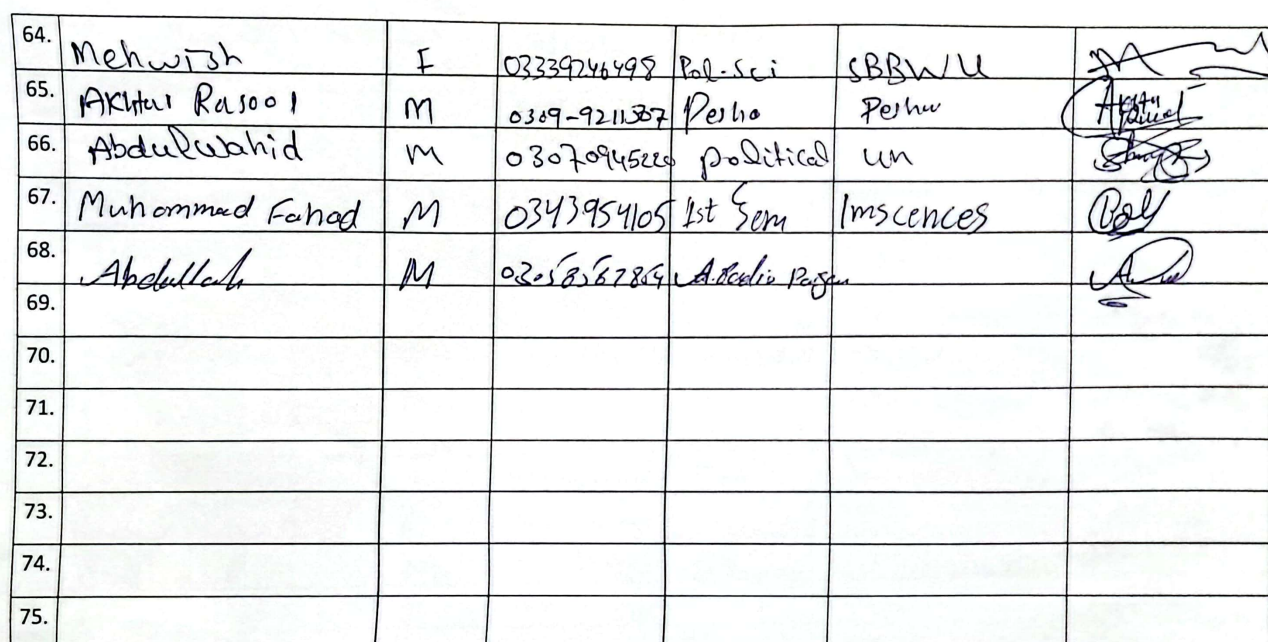 64. Mehwish F 03339246498 Pol-Sci SBBWU
65. Akhtar Rasool M 0309-9211307 Pesho Peshw
66. Abdulwahid M 03070945220 political un
67. Muhammad Fahad M 0343954105 1st Sem Imscences
68. Abdullah M
69.
70.
71.
72.
73.
74.
75.